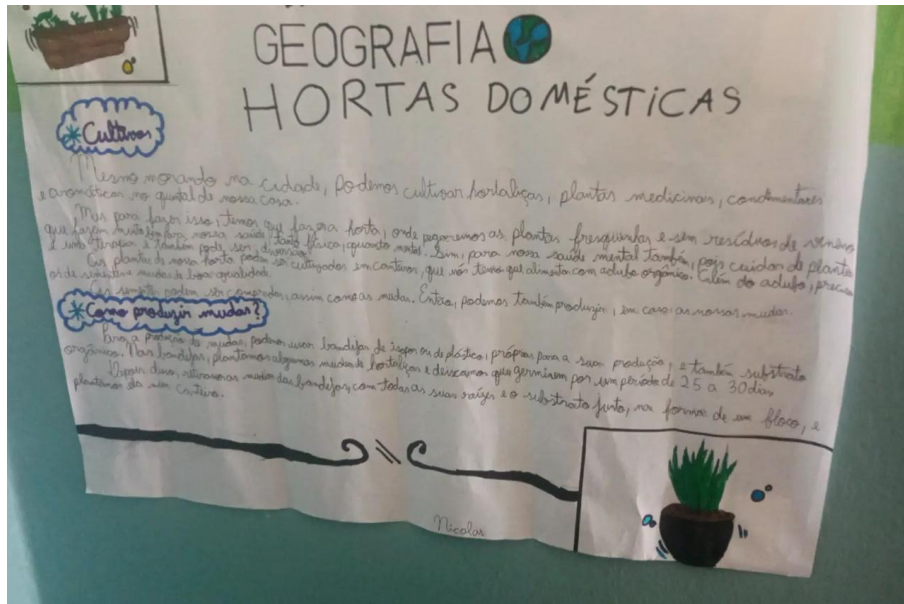 GEOGRAFIA
HORTAS DOMÉSTICAS
*Cultivos
Mesmo morando na cidade, Podemos cultivar hortaliças, plantas medicinais, condimentares
e aromáticas no quintal de nossa casa.
Mas para fazer isso, temos que fazer a horta, onde pegaremos as plantas fresquinhas e sem resíduos de veneno
que fazem muito bem para nossa saúde, tanto física, quando mental. Sim, para nossa saúde mental também, pois cuidar de plantas
é uma terapia e também pode ser divertido.
As plantas de nossa horta podem ser cultivadas em canteiros, que nós temos que alimentar com adubo orgânico. Além do adubo, precisa
os de sementes e mudas de boa qualidade.
As sementes podem ser compradas, assim como as mudas. Entao, podemos também produzir, em casa as nossas mudas.
*Como produzir mudas?
Para a produção de mudas, podemos usar bandejas de isopor ou de plástico, próprias para a sua produção, e também substrato
orgânico. Nas bandejas, plantamos algumas mudas de hortaliças e deixamos que germinem por um período de 25 a 30 dias
Depois disso, retiramos as mudas das bandejas, com todas as suas raízes e o substrato junto, na forma de um bloco, e
plantamos da num canteiro.
Nicolas